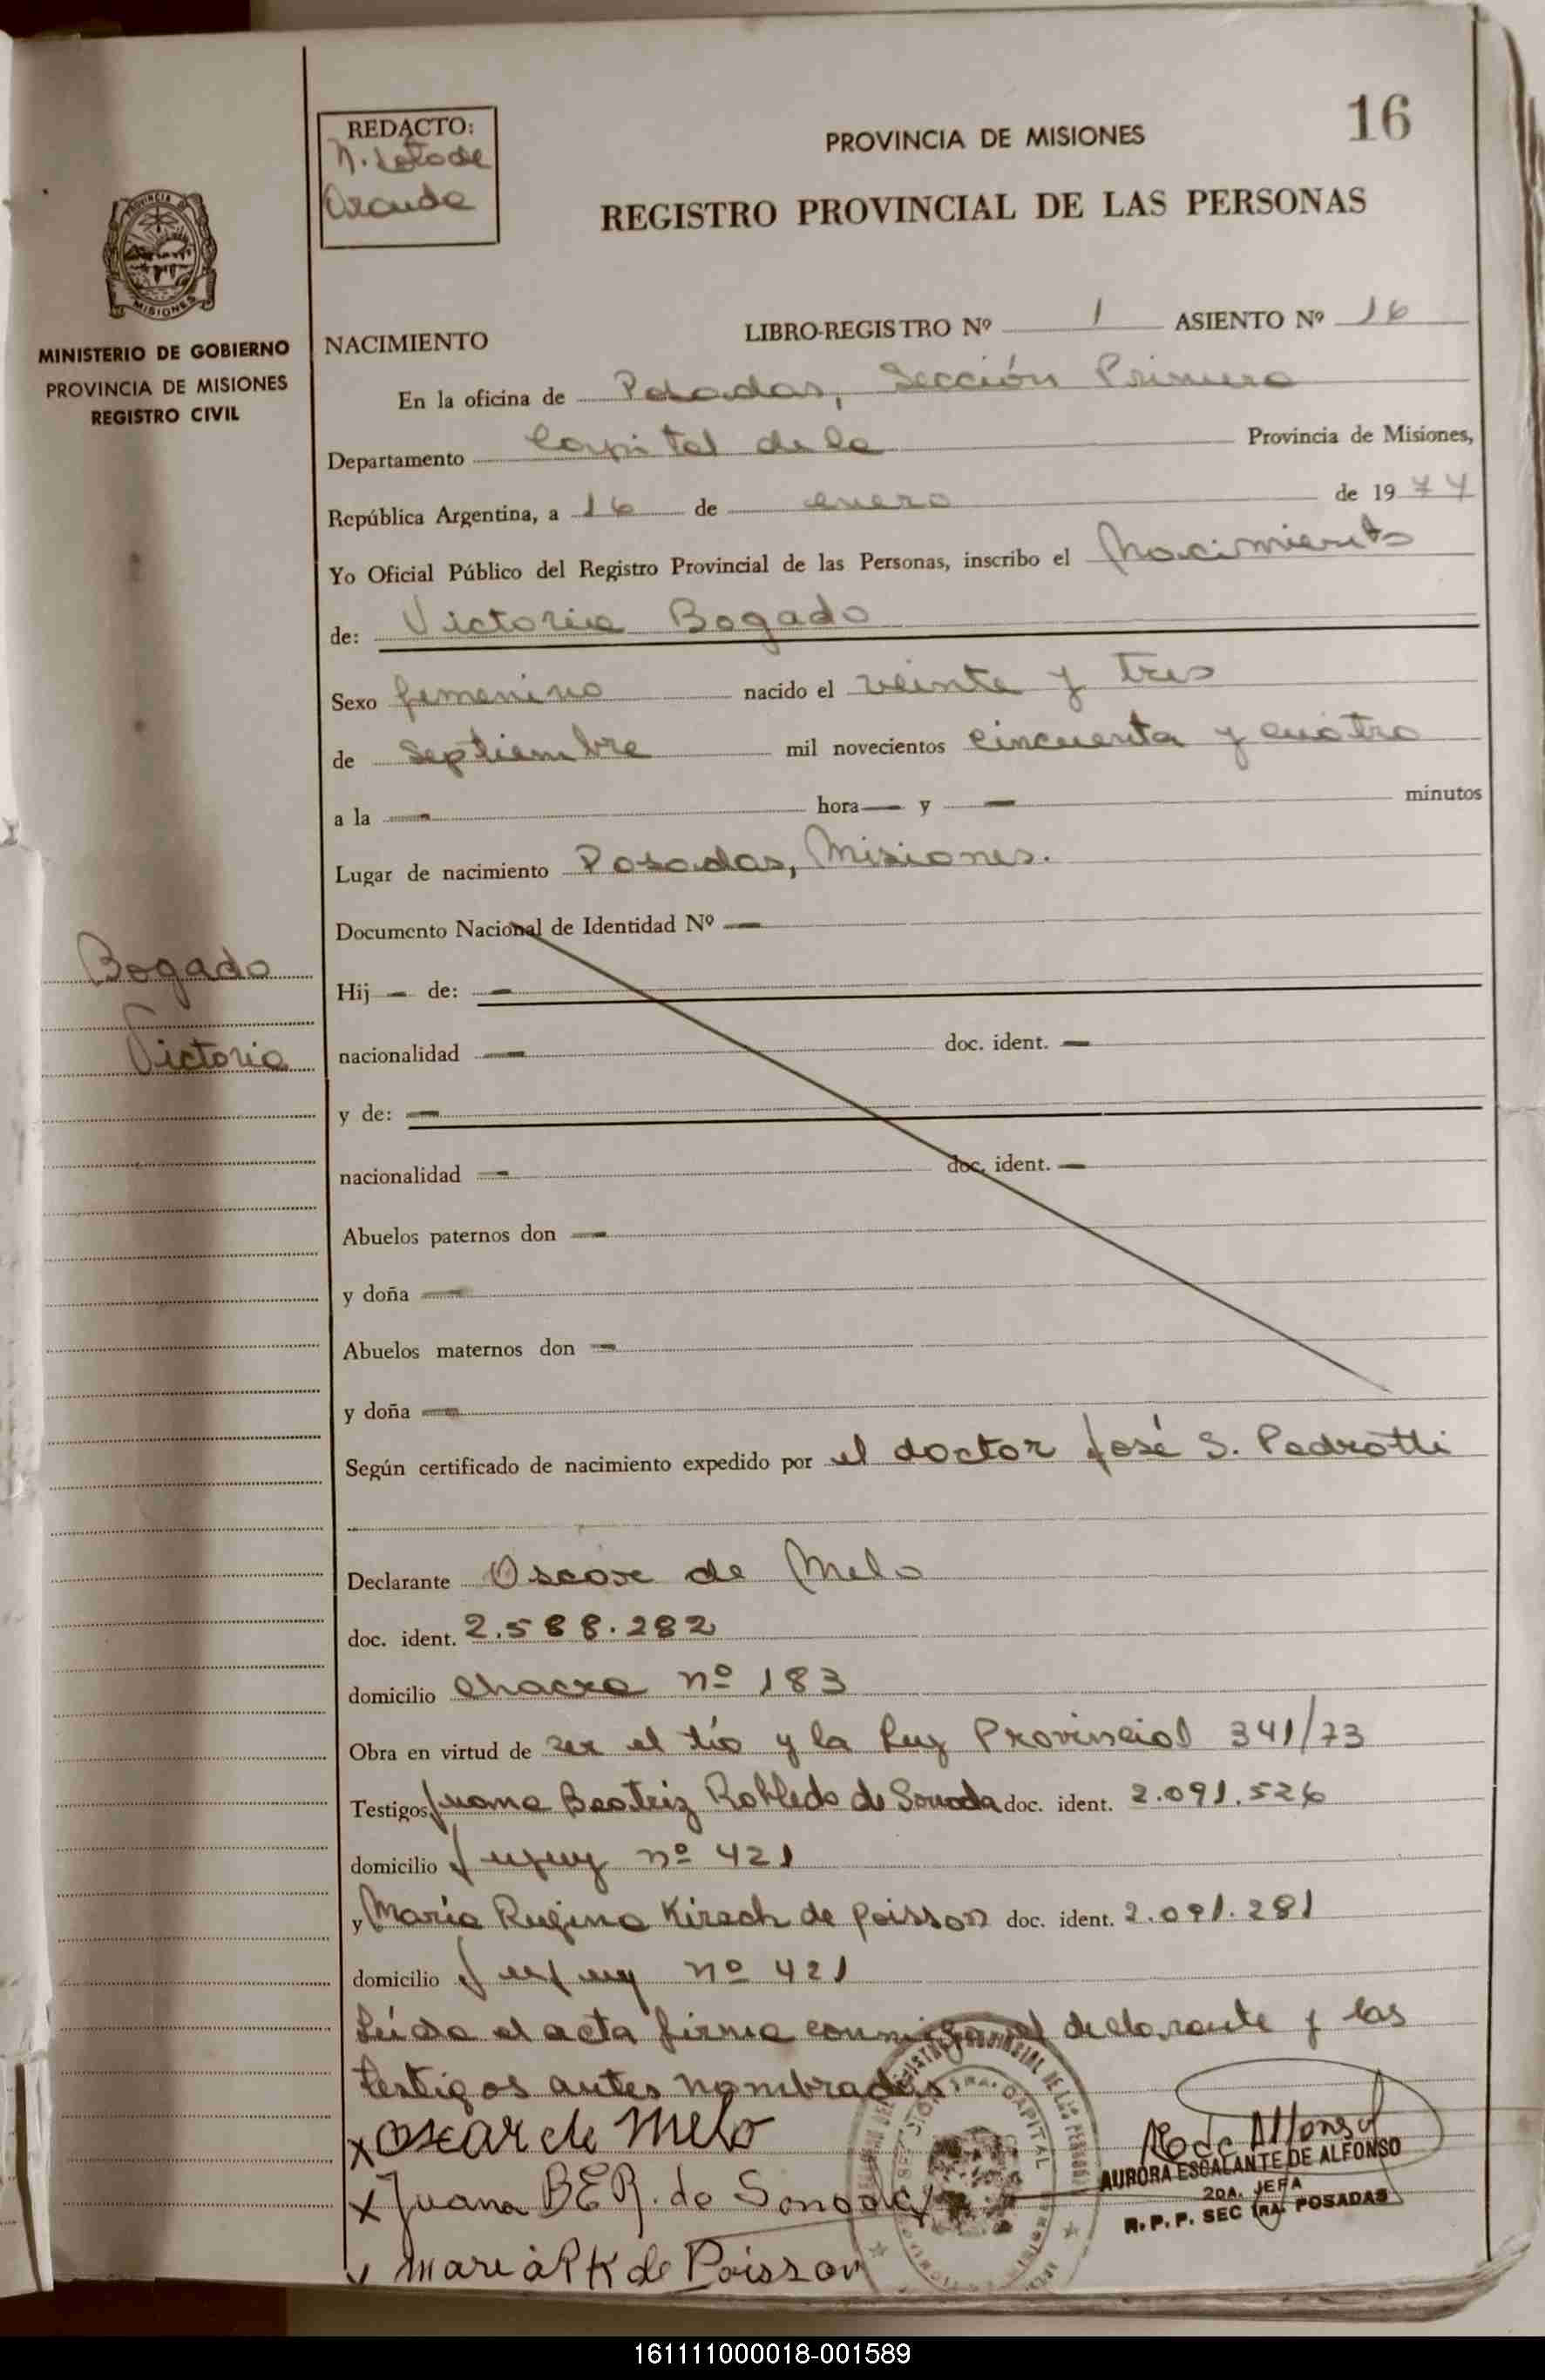 16
REDACTO:
PROVINCIA DE MISIONES
REGISTRO PROVINCIAL DE LAS PERSONAS
PROVINCIA DE
MISIONES
MINISTERIO DE GOBIERNO
PROVINCIA DE MISIONES
REGISTRO CIVIL
NACIMIENTO LIBRO-REGISTRO Nº 1 ASIENTO Nº 16
En la oficina de Posadas, Sección Primera
Departamento Capital de la Provincia de Misiones,
República Argentina, a 16 de enero de 1974
Yo Oficial Público del Registro Provincial de las Personas, inscribo el Nacimiento
de: Victoria Bogado
Sexo femenino nacido el veinte y tres
de Septiembre mil novecientos cincuenta y cuatro
a la — hora — y — minutos
Lugar de nacimiento Posadas, Misiones.
Documento Nacional de Identidad Nº —
Bogado
Victoria
Hij — de: —
nacionalidad — doc. ident. —
y de: —
nacionalidad — doc. ident. —
Abuelos paternos don —
y doña —
Abuelos maternos don —
y doña —
Según certificado de nacimiento expedido por el doctor José S. Pedrotti
Declarante Oscar de Melo
doc. ident. 2.588.282
domicilio Chacra nº 183
Obra en virtud de ser el tío y la Ley Provincial 341/73
Testigos Juana Beatriz Robledo de Sonoda doc. ident. 2.091.526
domicilio Jujuy nº 421
y María Regina Kirsch de Poisson doc. ident. 2.091.281
domicilio Jujuy nº 421
Leída el acta firma conmigo el declarante y las
testigos antes nombradas
x Oscar de Melo
x Juana B. R. de Sonoda
Maria R K de Poisson
AURORA ESCALANTE DE ALFONSO
2DA. JEFA
R. P. P. SEC 1RA. POSADAS
161111000018-001589